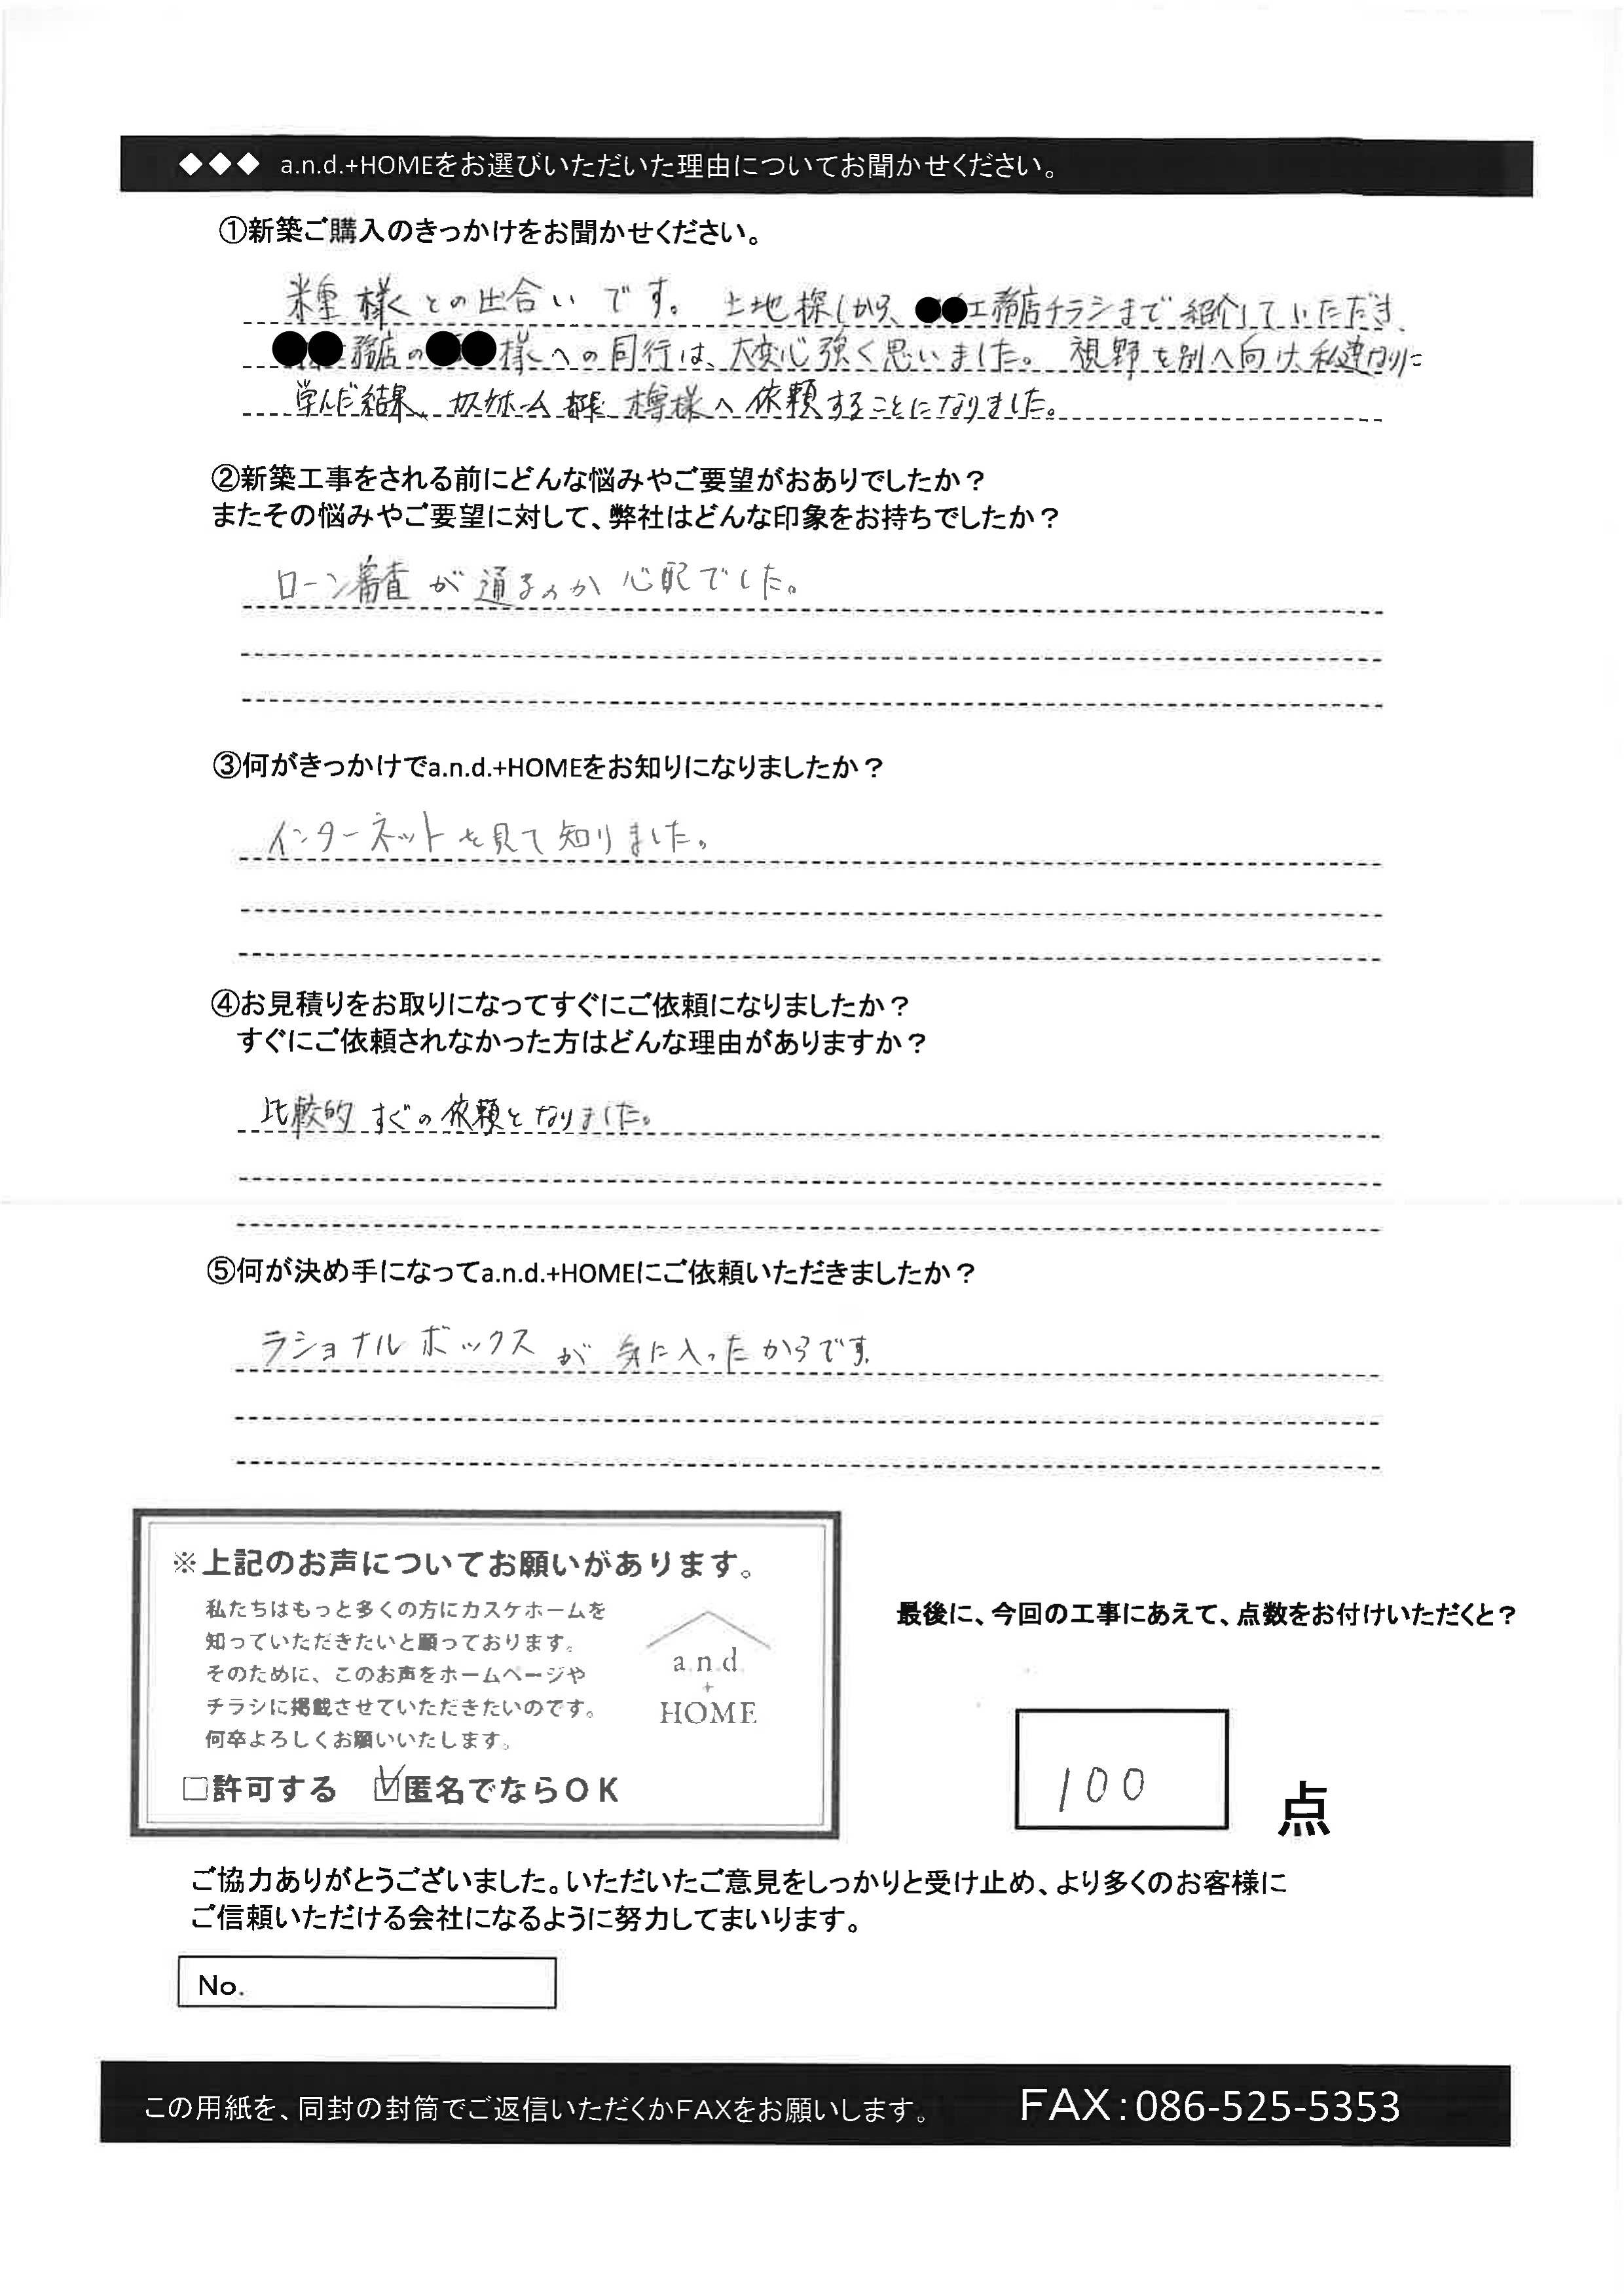 ◆◆◆ a.n.d.+HOMEをお選びいただいた理由についてお聞かせください。
①新築ご購入のきっかけをお聞かせください。
様との出合いです。土地探しから、●●工務店チラシまで紹介していただき、
●●務店の●●様への同行は、大変心強く思いました。視野を別へ向け、私達なりに
学んだ結果、カスケホーム 様へ依頼することになりました。
②新築工事をされる前にどんな悩みやご要望がおありでしたか？
またその悩みやご要望に対して、弊社はどんな印象をお持ちでしたか？
ローン審査が通るのか心配でした。
③何がきっかけでa.n.d.+HOMEをお知りになりましたか？
インターネットを見て知りました。
④お見積りをお取りになってすぐにご依頼になりましたか？
すぐにご依頼されなかった方はどんな理由がありますか？
比較的すぐの依頼となりました。
⑤何が決め手になってa.n.d.+HOMEにご依頼いただきましたか？
ラショナルボックスが気に入ったからです。
※上記のお声についてお願いがあります。
私たちはもっと多くの方にカスケホームを
知っていただきたいと願っております。
そのために、このお声をホームページや
チラシに掲載させていただきたいのです。
何卒よろしくお願いいたします。
a.n.d.
+
HOME
□許可する ☑匿名でならOK
最後に、今回の工事にあえて、点数をお付けいただくと？
100
点
ご協力ありがとうございました。いただいたご意見をしっかりと受け止め、より多くのお客様に
ご信頼いただける会社になるように努力してまいります。
No.
この用紙を、同封の封筒でご返信いただくかFAXをお願いします。 FAX：086-525-5353